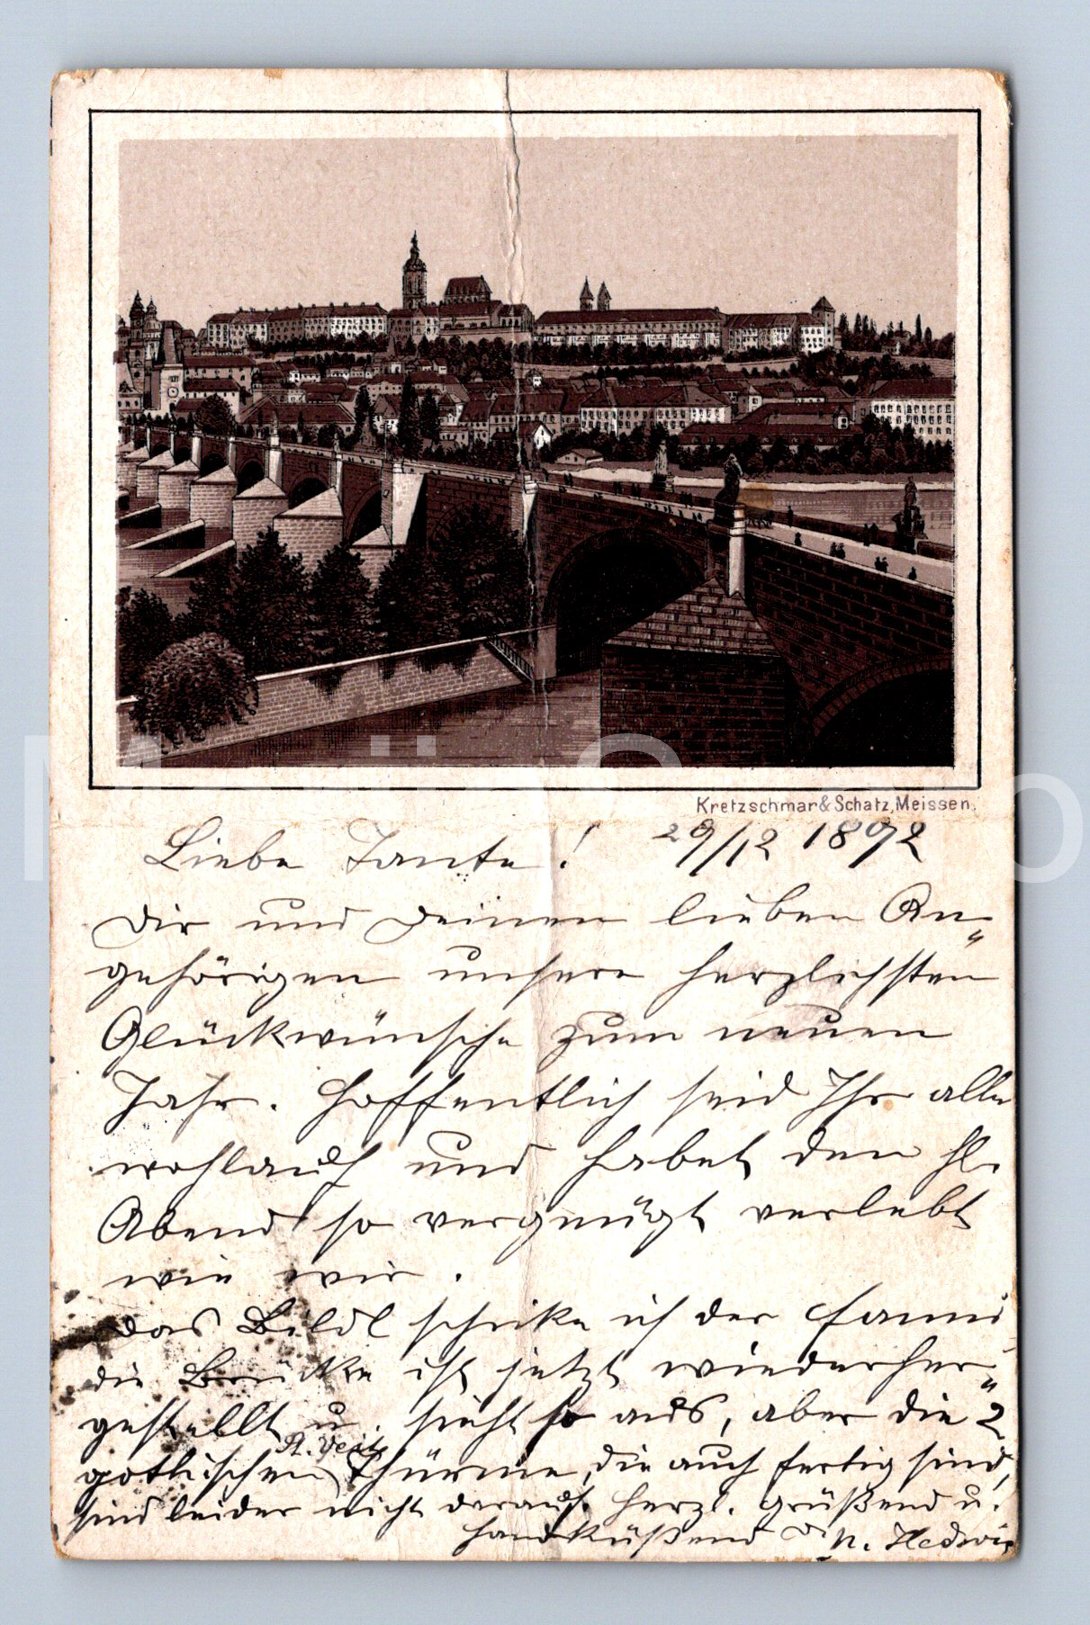 Kretzschmar & Schatz, Meissen.
Liebe Tante! 29/12 1892
Dir und Deinen lieben An-
gehörigen unsere herzlichsten
Glückwünsche zum neuen
Jahr. Hoffentlich seid Ihr alle
wohlauf und habet den hl.
Abend so vergnügt verlebt
wie wir.
Das Bildl schike ich der Fanni
die Brücke ist jetzt wiederher-
gestellt u. sieht so aus, aber die 2
St. Veits
gothischen Thürme, die auch fertig sind,
sind leider nicht derauf. Herzl. grüßend u.
handküßend D. N. Hedwig